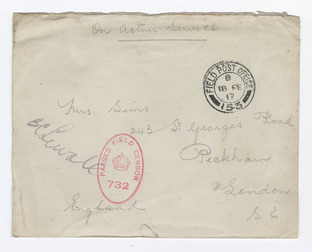 On Active Service
FIELD POST OFFICE
B
18 FE
17
153
Mrs. Sims
243 St Georges Road
Peckham
London
S.E
England
PASSED FIELD CENSOR
732